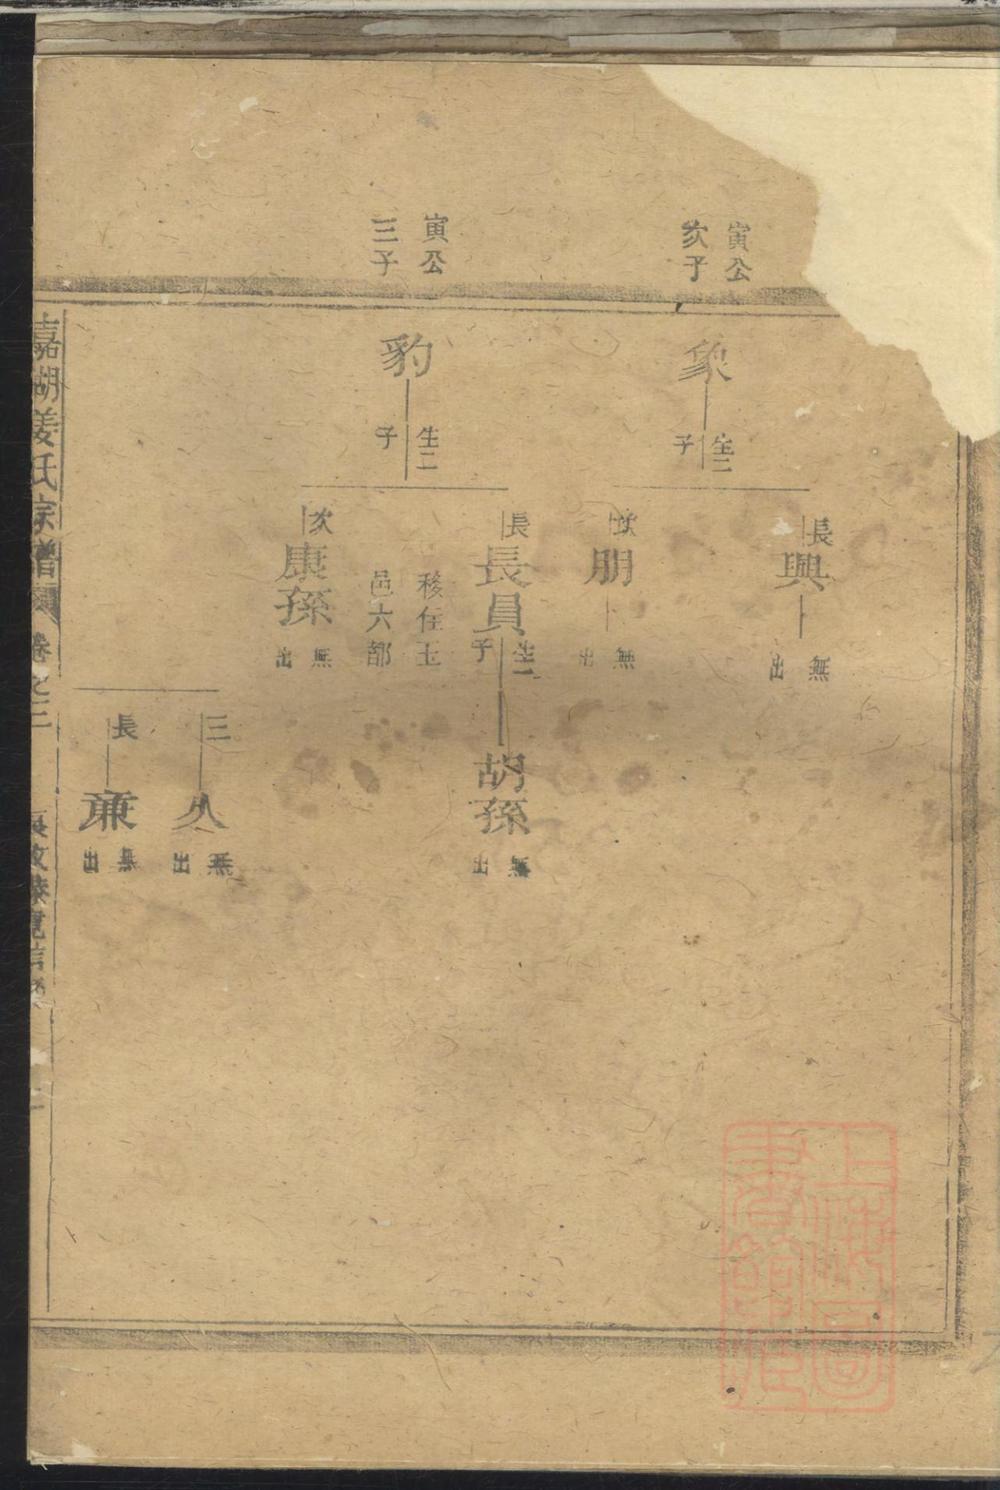 寅公
次子
象
生二
子
長
興
無
出
次
朋
無
出
寅公
三子
豹
生二
子
長
長員
移住玉
邑六都
生一
子
胡孫
無
出
次
康孫
無
出
三
八
無
出
長
無
出
嘉湖姜氏宗譜
卷之二
上海圖
書館藏